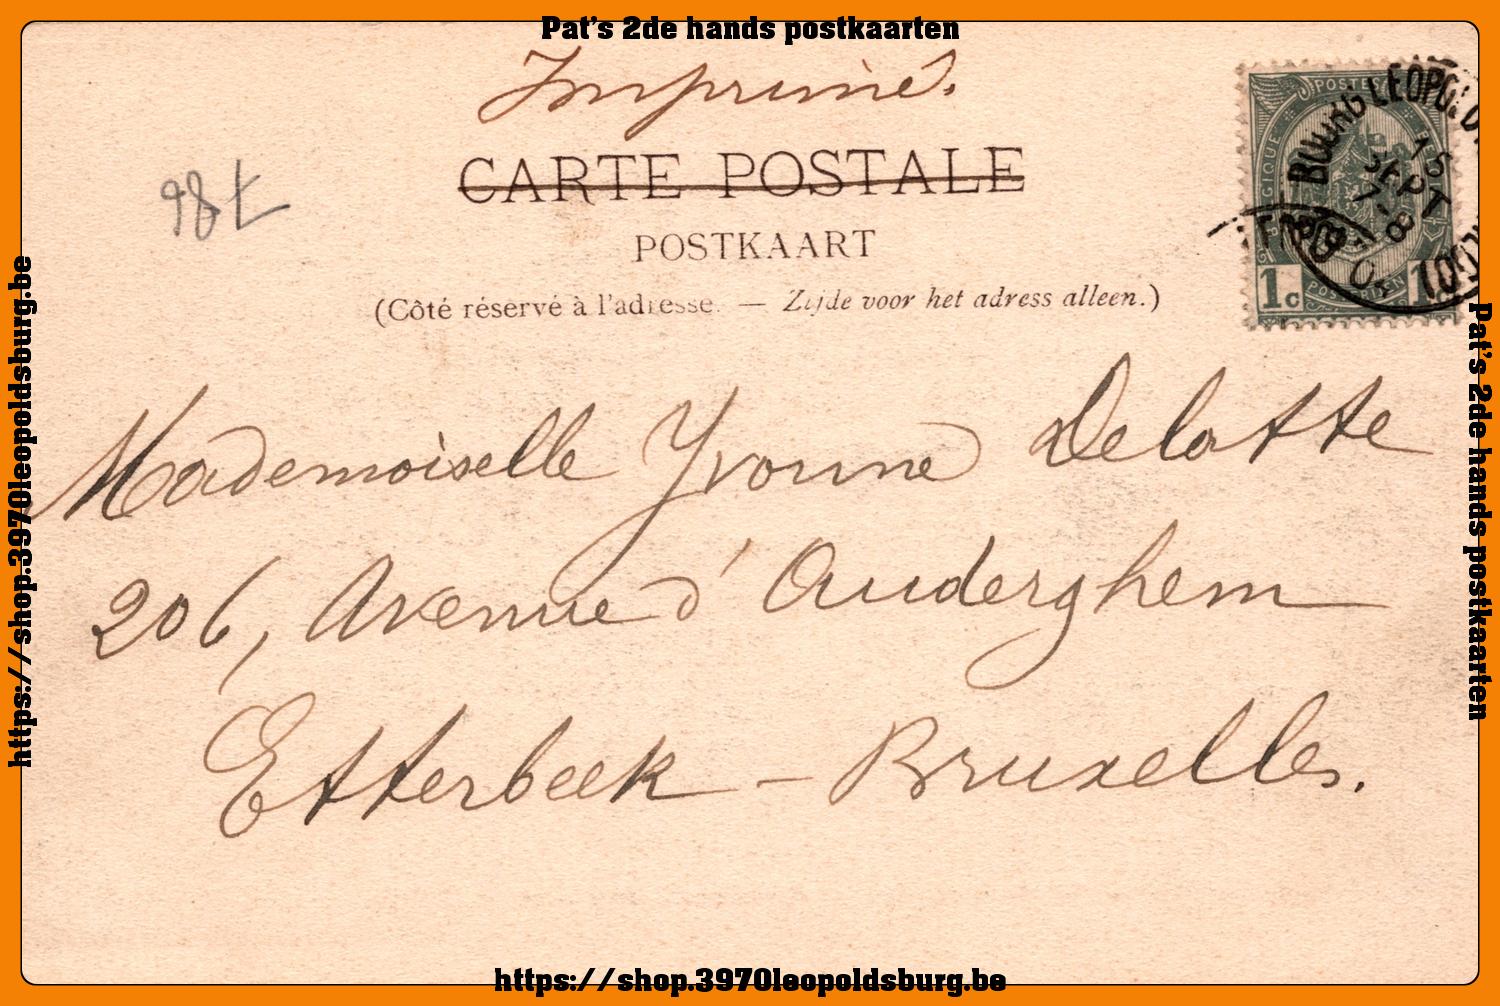 Pat's 2de hands postkaarten
Imprimé.
CARTE POSTALE
POSTKAART
(Côté réservé à l'adresse. — Zijde voor het adress alleen.)
POSTES
1c
POSTERIJEN
15
SEPT
7-8
Mademoiselle Yvonne Delatte
206, Avenue d'Auderghem
Etterbeek - Bruxelles.
https://shop.3970leopoldsburg.be
Pat's 2de hands postkaarten
https://shop.3970leopoldsburg.be